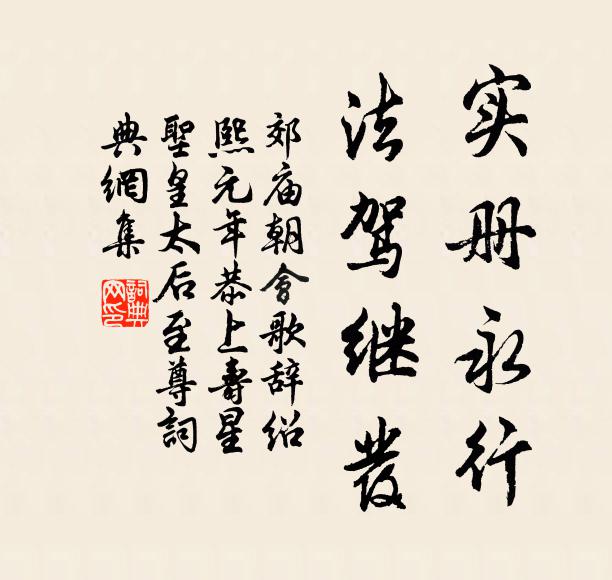 实册永行
法驾继發
郊庙朝會歌辞绍
熙元年恭上壽星
聖皇太后至尊詞
典網集
詞典
网印